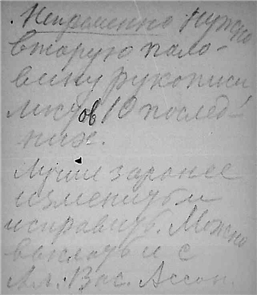 Непременно нужно
вторую поло-
вину рукописи
листов 10 послед-
них.
Лучше заранее
изменить и
исправить. Можно
и с
Ал. Вас.